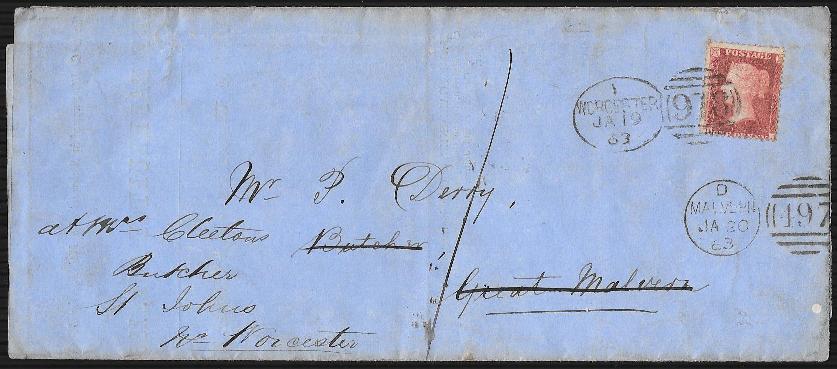 POSTAGE
1
WORCESTER
JA 19
63
D
MALVERN
JA 20
63
497
Mr P. Derry,
Butcher,
Great Malvern
at Mrs Cleetons
Butcher
St Johns
Nr Worcester